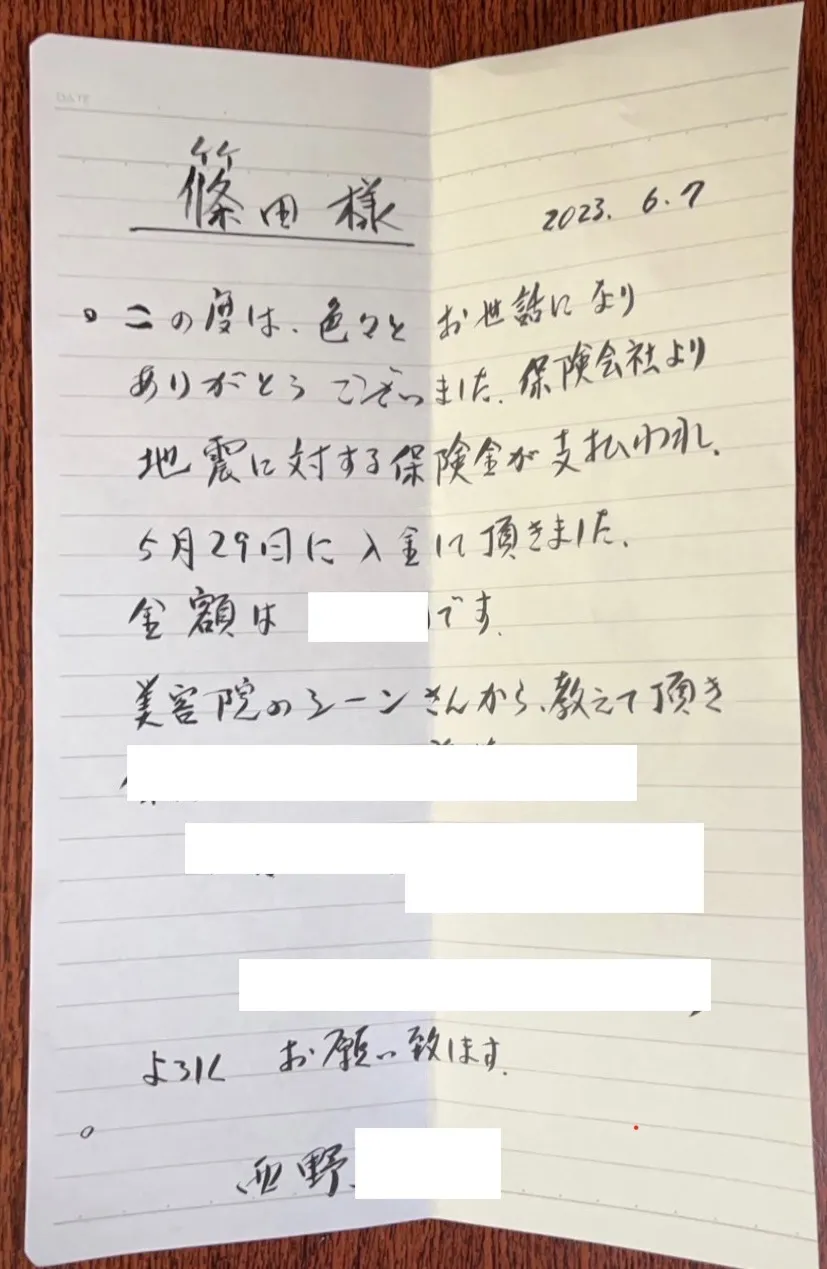 DATE
篠田 様
2023. 6. 7
。この度は、色々と お世話になり
ありがとうございました。保険会社より
地震に対する保険金が支払われ、
5月29日に入金して頂きました。
金額は です。
美容院のシーンさんから、教えて頂き
よろしく お願い致します。
西野